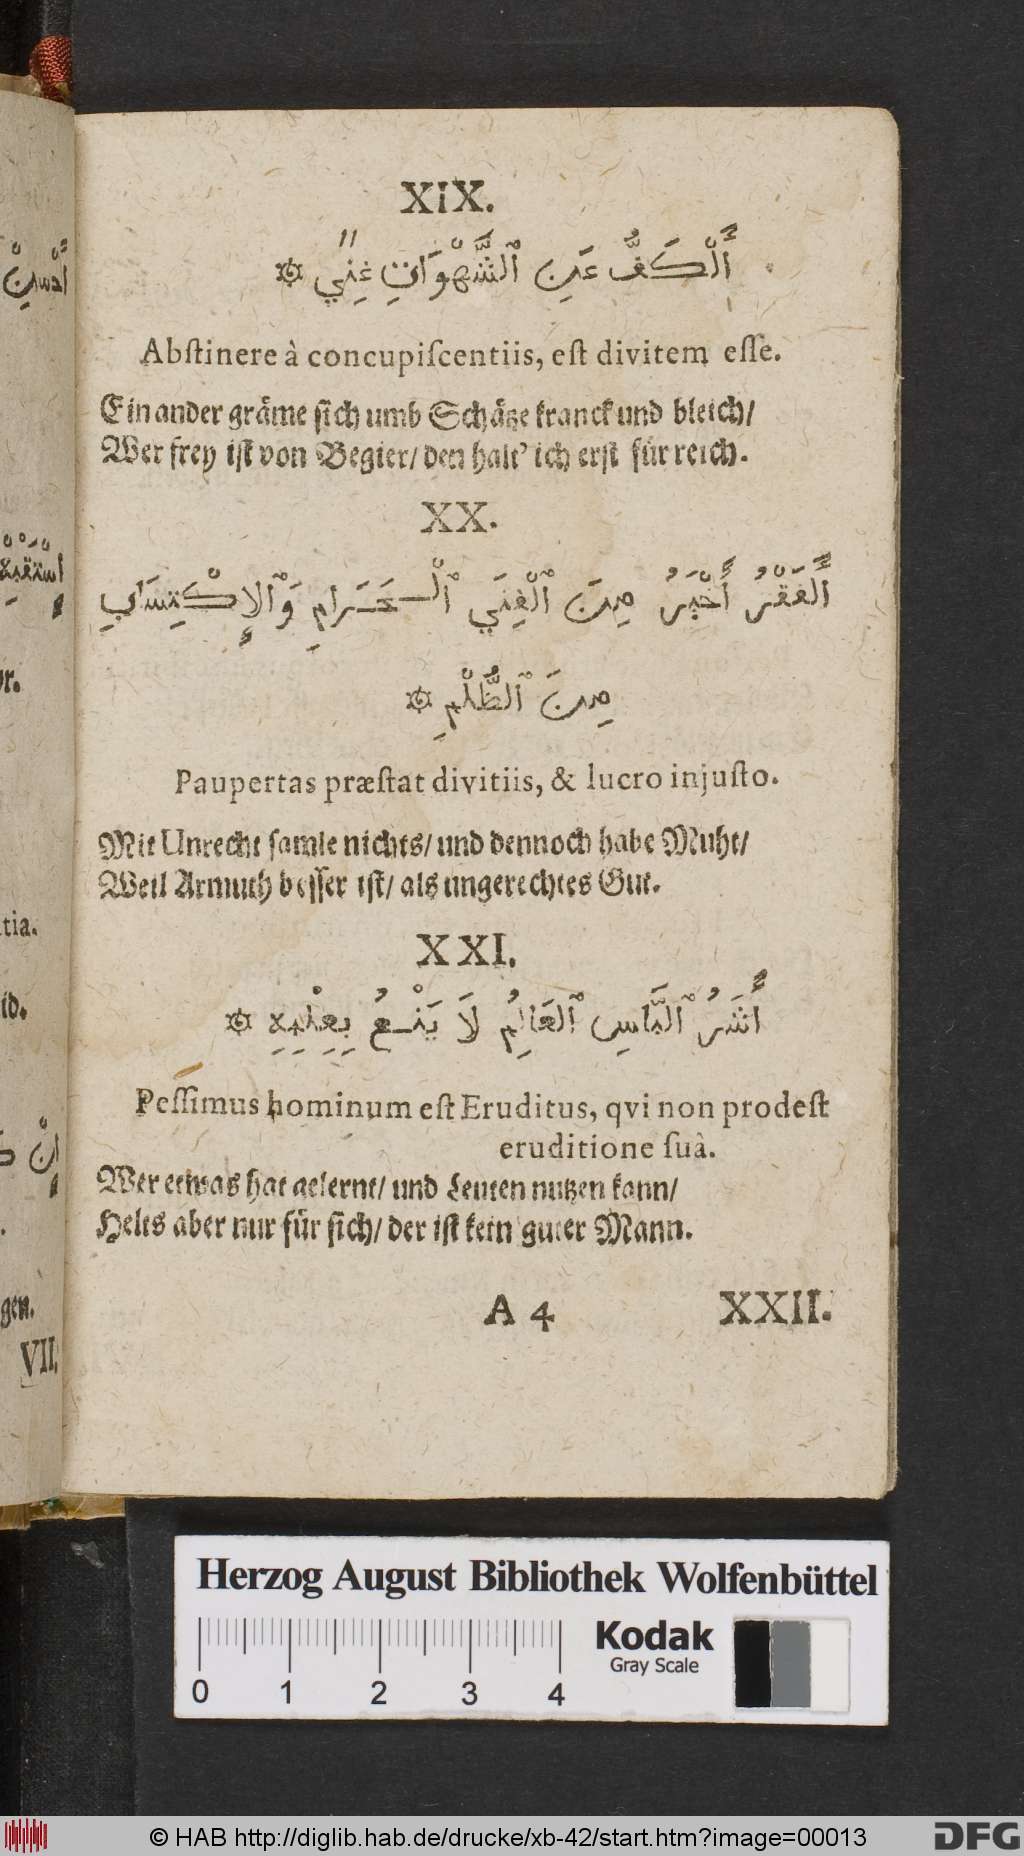 XIX.
أَلْكَفُّ عَنِ ٱلشَّهْوَاتِ غِنًي ۞
Abſtinere à concupiſcentiis, eſt divitem eſſe.
Ein ander gräme ſich umb Schätze kranck und bleich/
Wer frey iſt von Begier/ den halt' ich erſt für reich.
XX.
أَلْفَقْرُ أَخْيَرُ مِنَ ٱلْغِنَي ٱلْحَرَامِ وَٱلإِكْتِسَابِ
مِنَ ٱلظُّلْمِ ۞
Paupertas præſtat divitiis, & lucro injuſto.
Mit Unrecht ſamle nichts/ und dennoch habe Muht/
Weil Armuth beſſer iſt/ als ungerechtes Gut.
XXI.
أَشَرُ ٱلنَّاسِ ٱلعَالِمُ لَا يَنْفَعُ بِعِلْمِهِ ۞
Peſſimus hominum eſt Eruditus, qvi non prodeſt
eruditione ſuâ.
Wer etwas hat gelernt/ und Leuten nutzen kann/
Helts aber nur für ſich/ der iſt kein guter Mann.
A 4 XXII.
tia.
id.
gen.
VII.
Herzog August Bibliothek Wolfenbüttel
Kodak
Gray Scale
0 1 2 3 4
© HAB http://diglib.hab.de/drucke/xb-42/start.htm?image=00013
DFG